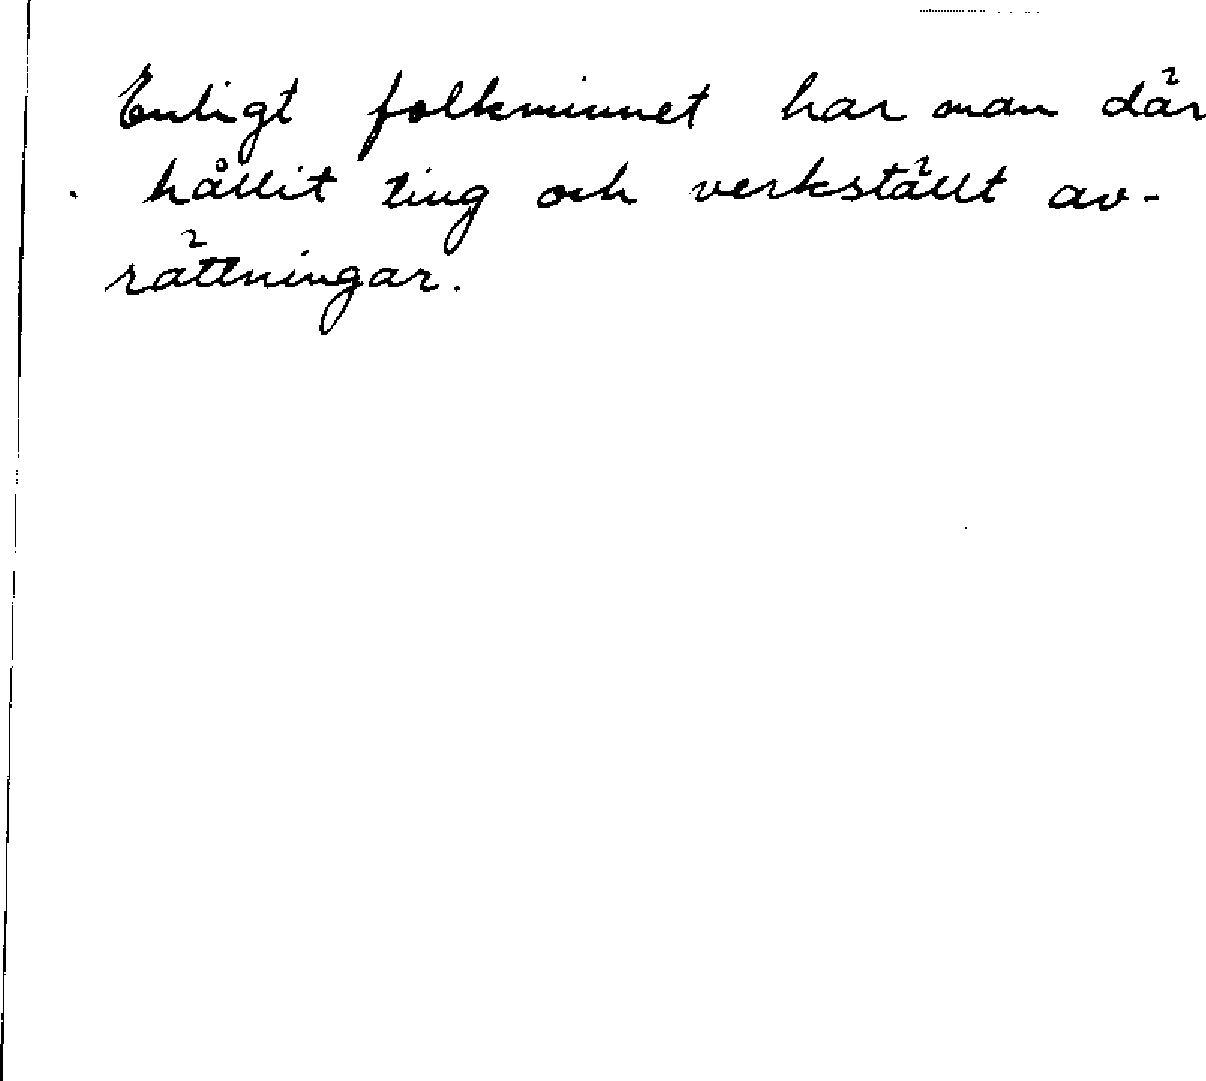 Enligt folkminnet har man där
hållit ting och verkställt av-
rättningar.